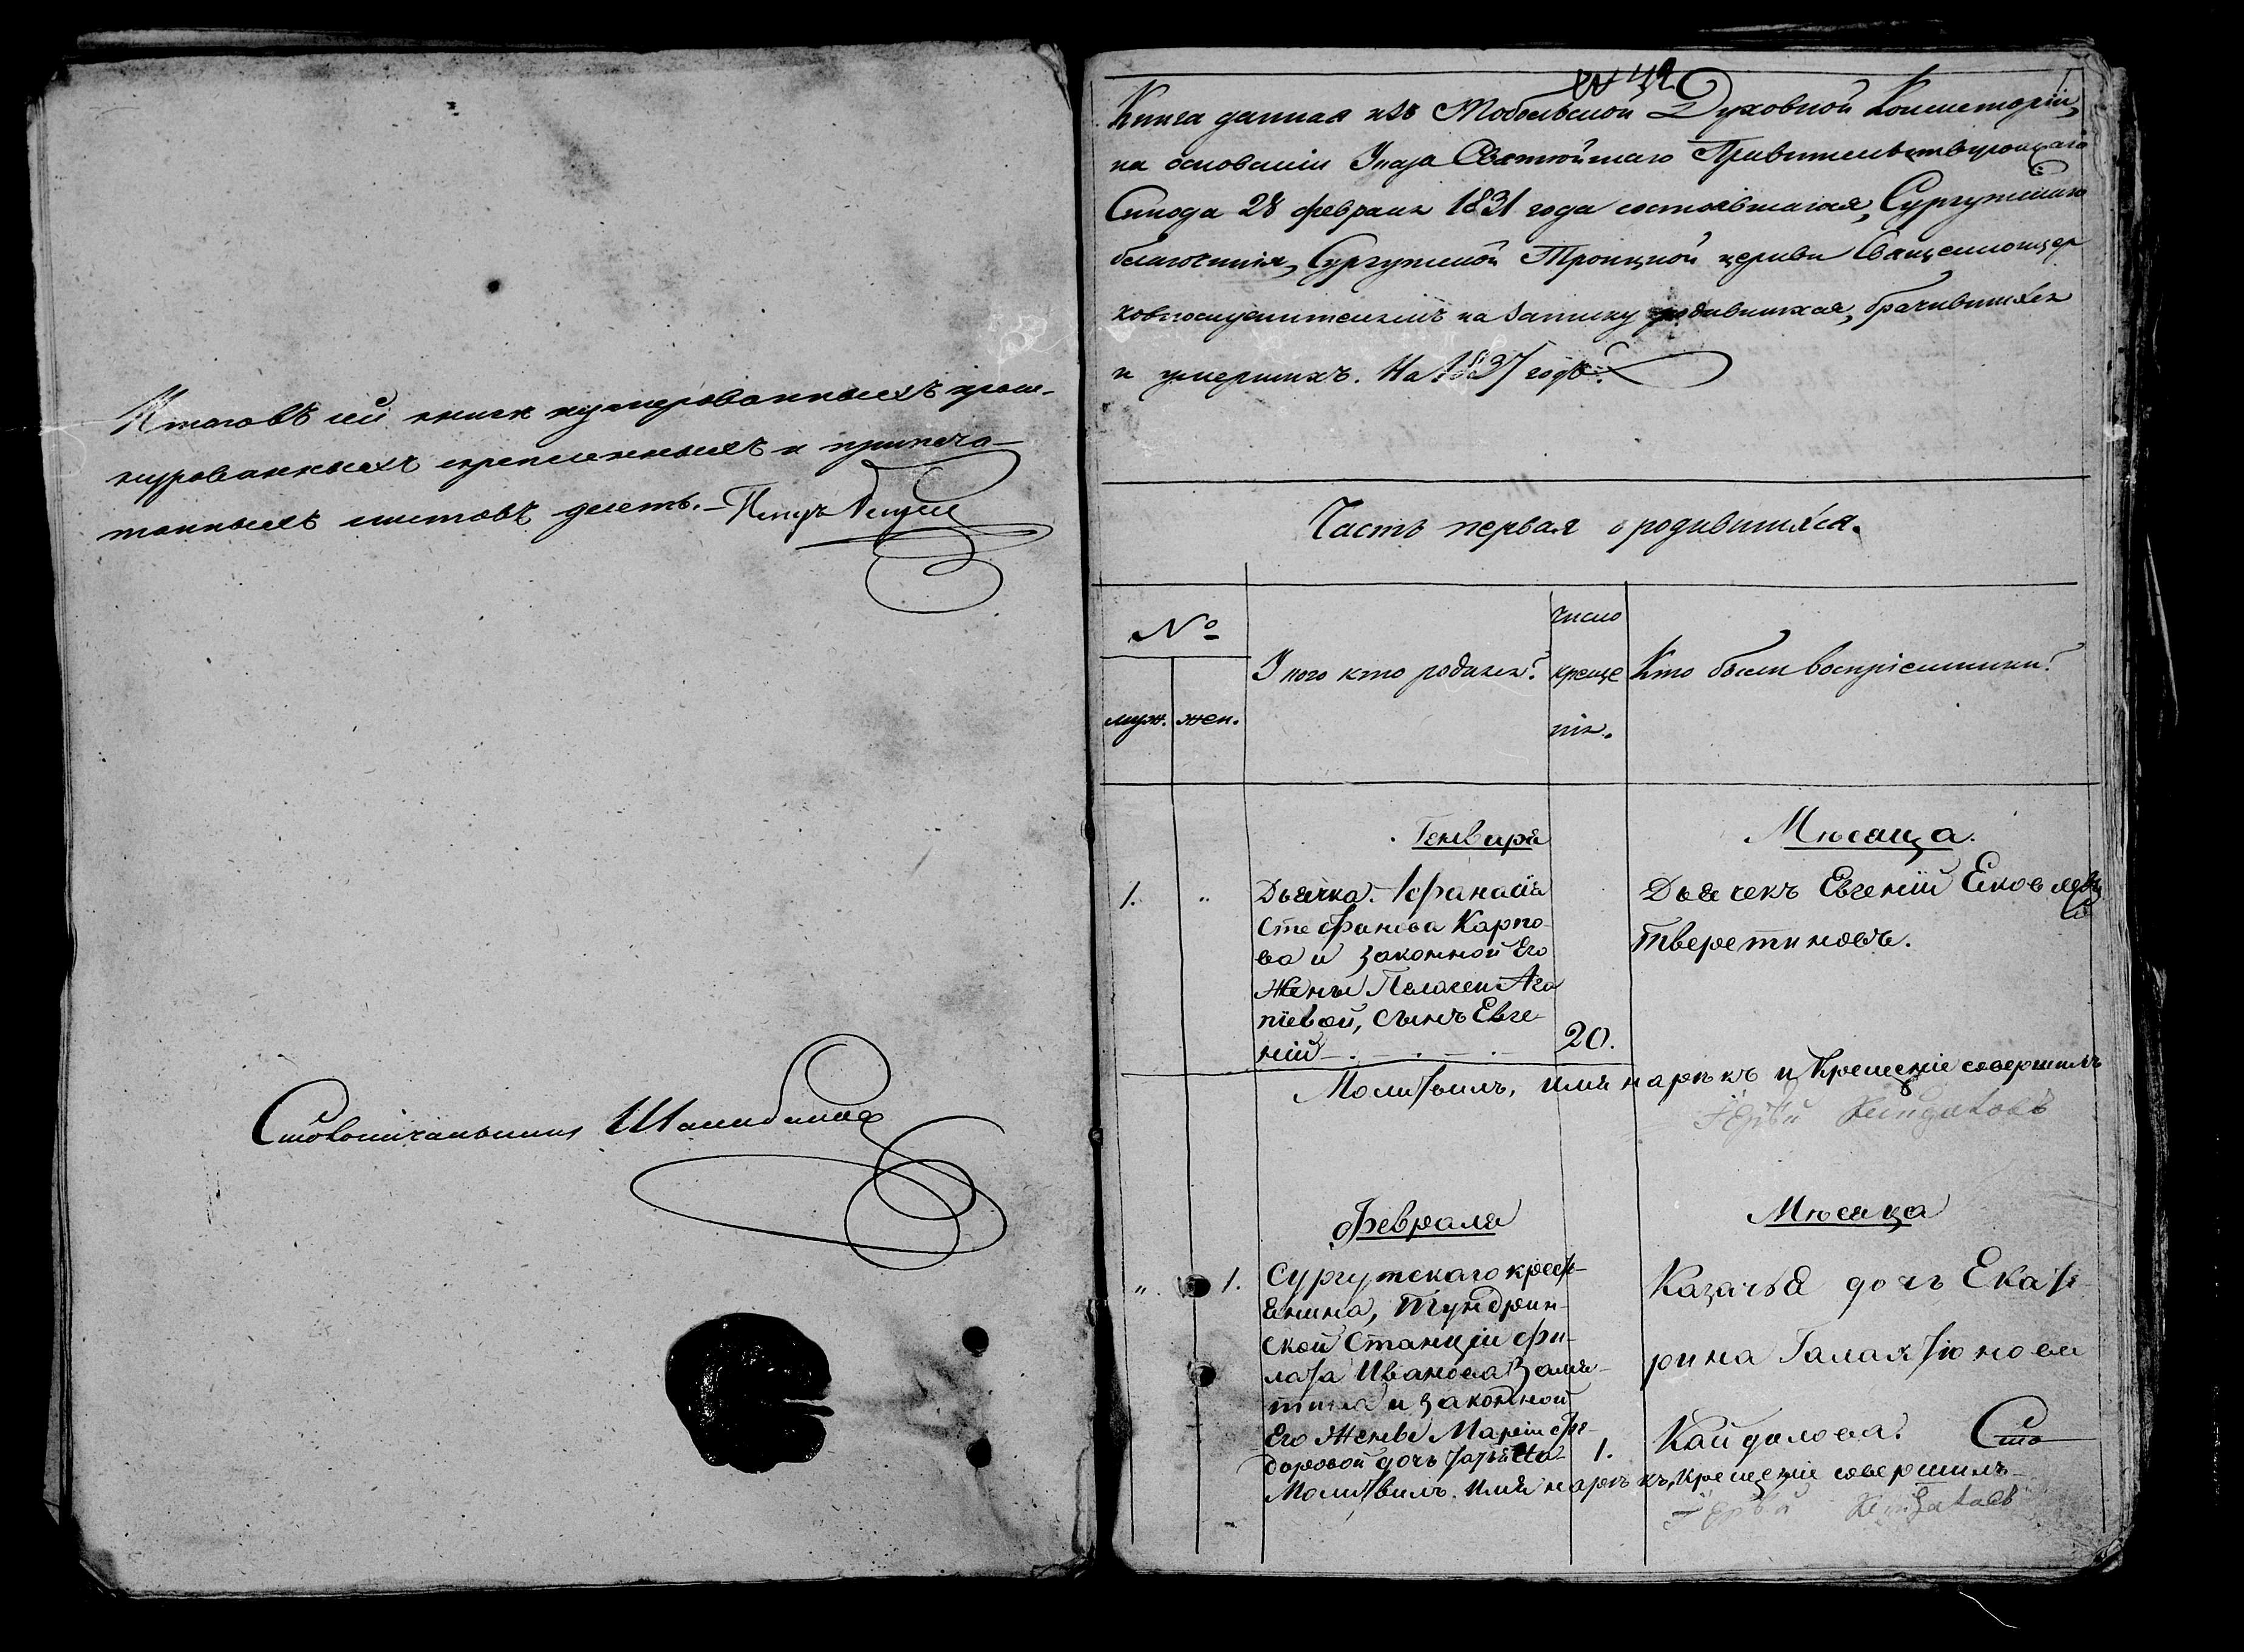 Итого въ сей книгѣ нумерованныхъ прош-
нурованныхъ скрепленныхъ и припеча-
танныхъ листовъ десеть.-
Столоначальникъ
№ 42
Книга данная изъ Тобольской Духовной Консисторіи,
на основаніи Указа Святѣйшаго Правительствующаго
Синода 28 февраля 1831 года состоявшагося, Сургутскаго
благочинія, Сургутской Троицкой церкви Священноцер
ковнослужителямъ на записку родившихся, брачившихся
и умершихъ. На 1837 годъ.
Часть первая о родившихся.
№
муж. жен.
У кого кто родился?
число
креще
нія.
Кто были воспріемники?
Генваря
Мѣсяца.
1. "
Дьячка Афанасія
Стефанова Карпо-
ва и законной Его
Жены Пелагеи Ага
піевой, сынъ Евге-
ній
20.
Дьячекъ Евгеній Яковлевъ
Тверетиновъ.
Молитвилъ, имя нарѣкъ и Крещеніе совершилъ
Іерей Кайдаловъ
Февраля
Мѣсяца
" 1.
Сургутскаго кресть-
янина, Тундрин-
ской Станціи Фи-
лата Иванова Замя-
тина и законной
Его Жены Маріи Фе-
доровой дочь Татіана
1.
Казачья дочь Екате
рина Галактіонова
Кайдалова.
Молитвилъ имя нарѣкъ, крещеніе совершилъ
Іерей Кайдаловъ